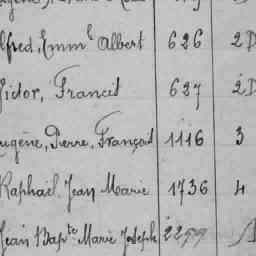 Alfred, Emm.l Albert 626 2D
Victor, Francis 627 2
Eugène, Pierre, François 1116 3
Raphaël, Jean Marie 1736 4
Jean Bapte Marie Joseph 2299